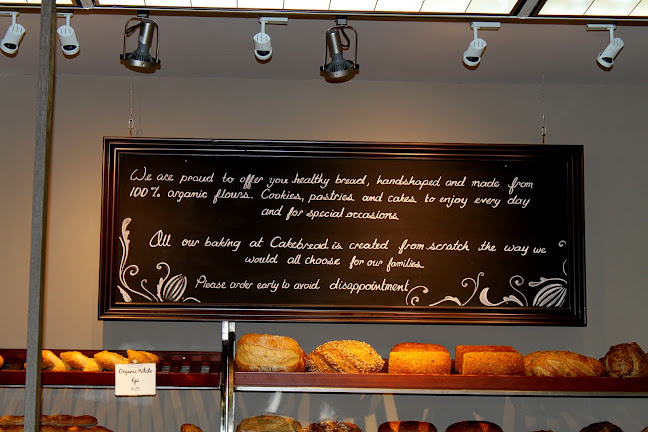 We are proud to offer you healthy bread, handshaped and made from
100% organic flours. Cookies, pastries and cakes to enjoy every day
and for special occasions.
All our baking at Cakebread is created from scratch the way we
would all choose for our families.
Please order early to avoid disappointment
Organic White